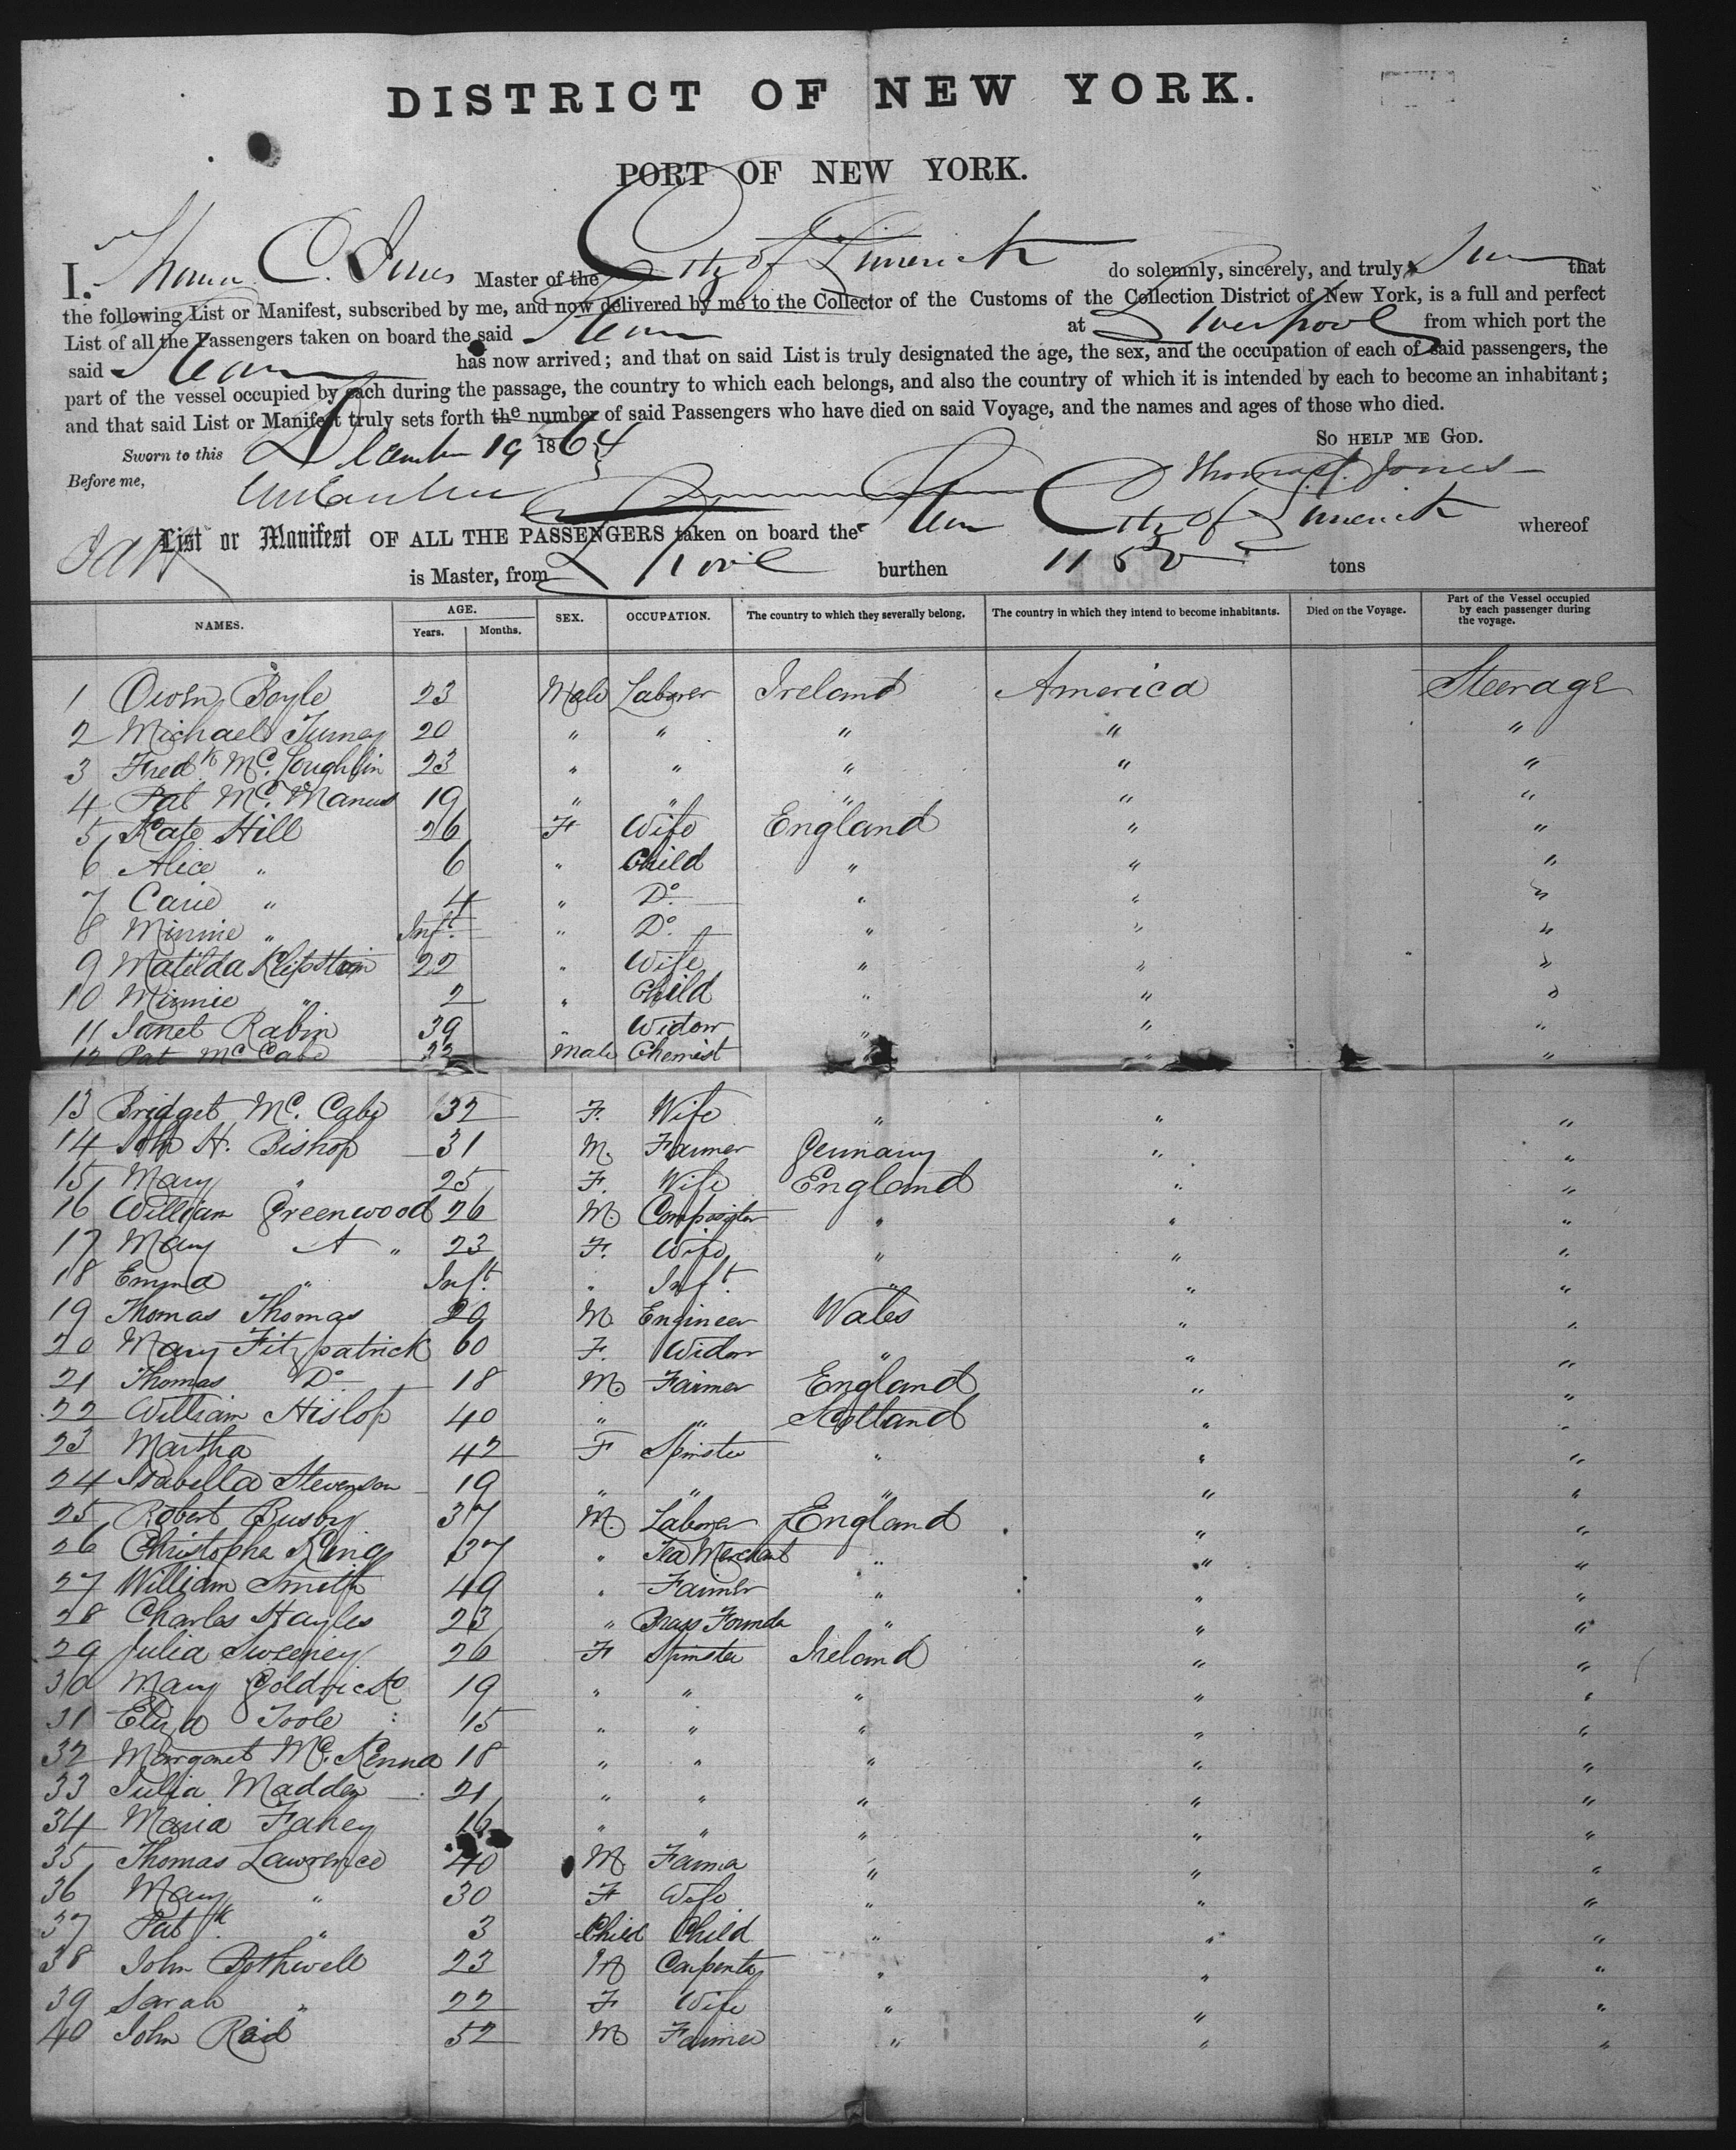 DISTRICT OF NEW YORK.
PORT OF NEW YORK.
I, Thomas C. Jones Master of the City of Limerick do solemnly, sincerely, and truly that
the following List or Manifest, subscribed by me, and now delivered by me to the Collector of the Customs of the Collection District of New York, is a full and perfect
List of all the Passengers taken on board the said Steamer at Liverpool from which port the
said Steamer has now arrived; and that on said List is truly designated the age, the sex, and the occupation of each of said passengers, the
part of the vessel occupied by each during the passage, the country to which each belongs, and also the country of which it is intended by each to become an inhabitant;
and that said List or Manifest truly sets forth the number of said Passengers who have died on said Voyage, and the names and ages of those who died.
Sworn to this December 19 1864 SO HELP ME GOD.
Before me, Thomas C. Jones
List or Manifest OF ALL THE PASSENGERS taken on board the City of Limerick whereof
is Master, from L'pool burthen tons
NAMES. AGE. Years. Months. SEX. OCCUPATION. The country to which they severally belong. The country in which they intend to become inhabitants. Died on the Voyage. Part of the Vessel occupied by each passenger during the voyage.
1 Owen Boyle 23 Male Laborer Ireland America Steerage
2 Michael 20 " " " " "
3 Fredk Mc.Loughlin 23 " " " " "
4 Pat Mc.Manus 19 " " " " "
5 Kate Hill 26 F Wife England " "
6 Alice " 6 " Child " " "
7 Carie " 4 " Do. " " "
8 Minnie " Inft. " Do. " " "
9 Matilda 22 " Wife " " "
10 Minnie " 2 " Child " " "
11 Janet Rabin 39 " Widow " " "
12 Pat McCabe 32 Male Chemist " " "
13 Bridget Mc.Cabe 32 F. Wife " " "
14 John H. Bishop 31 M. Farmer Germany " "
15 Mary " 25 F. Wife England " "
16 William Greenwood 26 M. Compositor " " "
17 Mary A " 23 F. Wife " " "
18 Emma " Inft. " Inft. " " "
19 Thomas Thomas 20 M. Engineer Wales " "
20 Mary Fitzpatrick 60 F. Widow " " "
21 Thomas Do. 18 M. Farmer England " "
22 William Hislop 40 " " Scotland " "
23 Martha 42 F Spinster " " "
24 Isabella Stevenson 19 " " " " "
25 Robert Busby 37 M. Laborer England " "
26 Christopher King 37 " Tea Merchant " " "
27 William Smith 49 " Farmer " " "
28 Charles Hayles 23 " Brass Founder " " "
29 Julia Sweeney 26 F Spinster Ireland " "
30 Mary Goldrick 19 " " " " "
31 Eliza Toole 15 " " " " "
32 Margaret Mc.Kenna 18 " " " " "
33 Julia Madden 21 " " " " "
34 Maria Fahey 16 " " " " "
35 Thomas Lawrence 40 M. Farmer " " "
36 Mary " 30 F Wife " " "
37 Patk. " 3 Child Child " " "
38 John Bothwell 23 M Carpenter " " "
39 Sarah " 22 F Wife " " "
40 John Reid 52 M. Farmer " " "